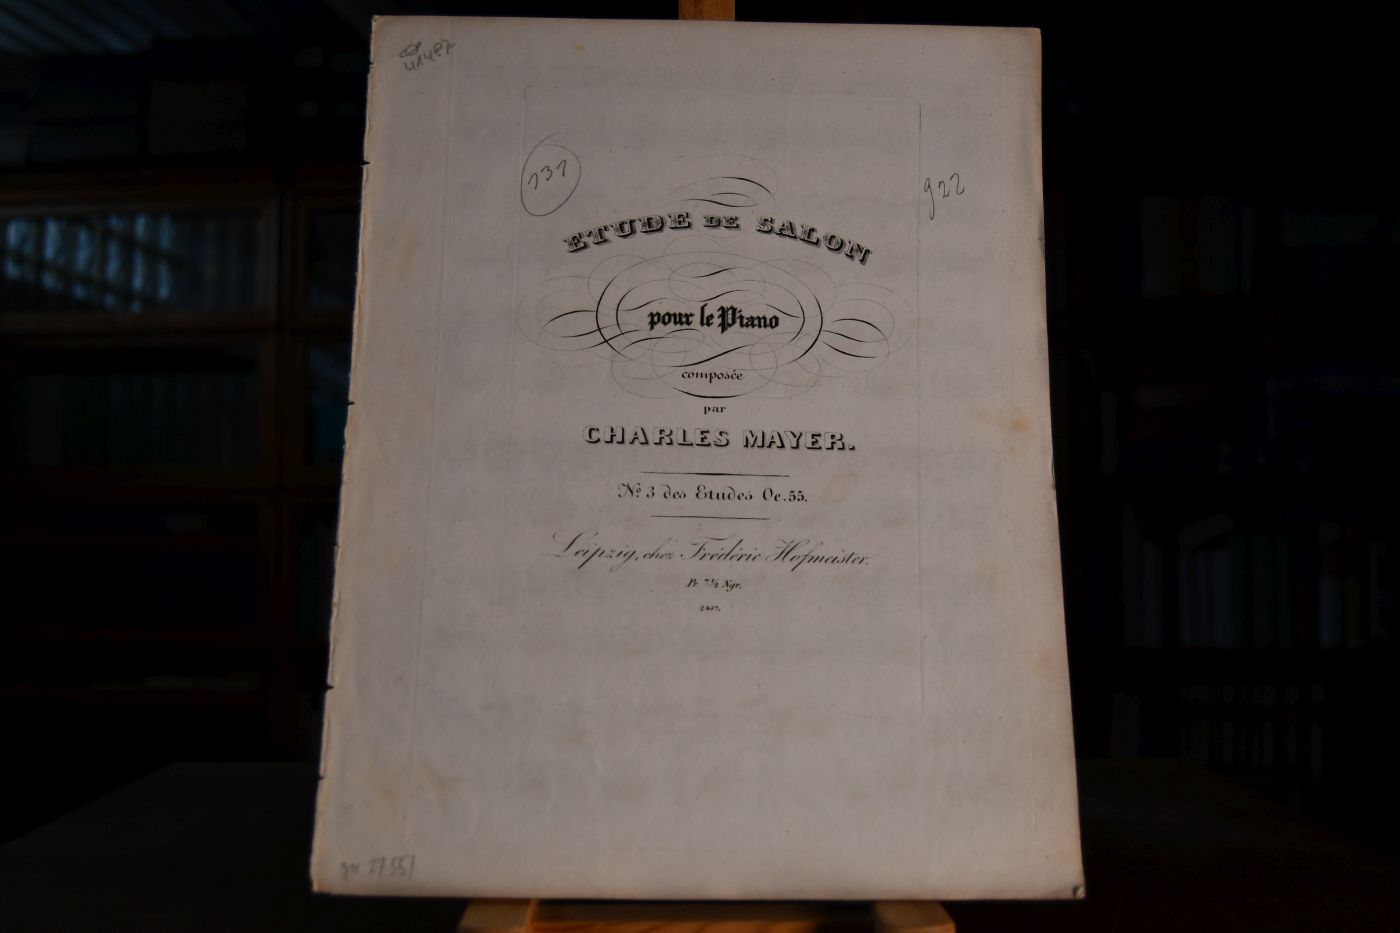 41487
131
922
ETUDE DE SALON
pour le Piano
composée
par
CHARLES MAYER.
No. 3 des Etudes Oe. 55.
Leipzig, chez Frédéric Hofmeister.
Pr. 7½ Ngr.